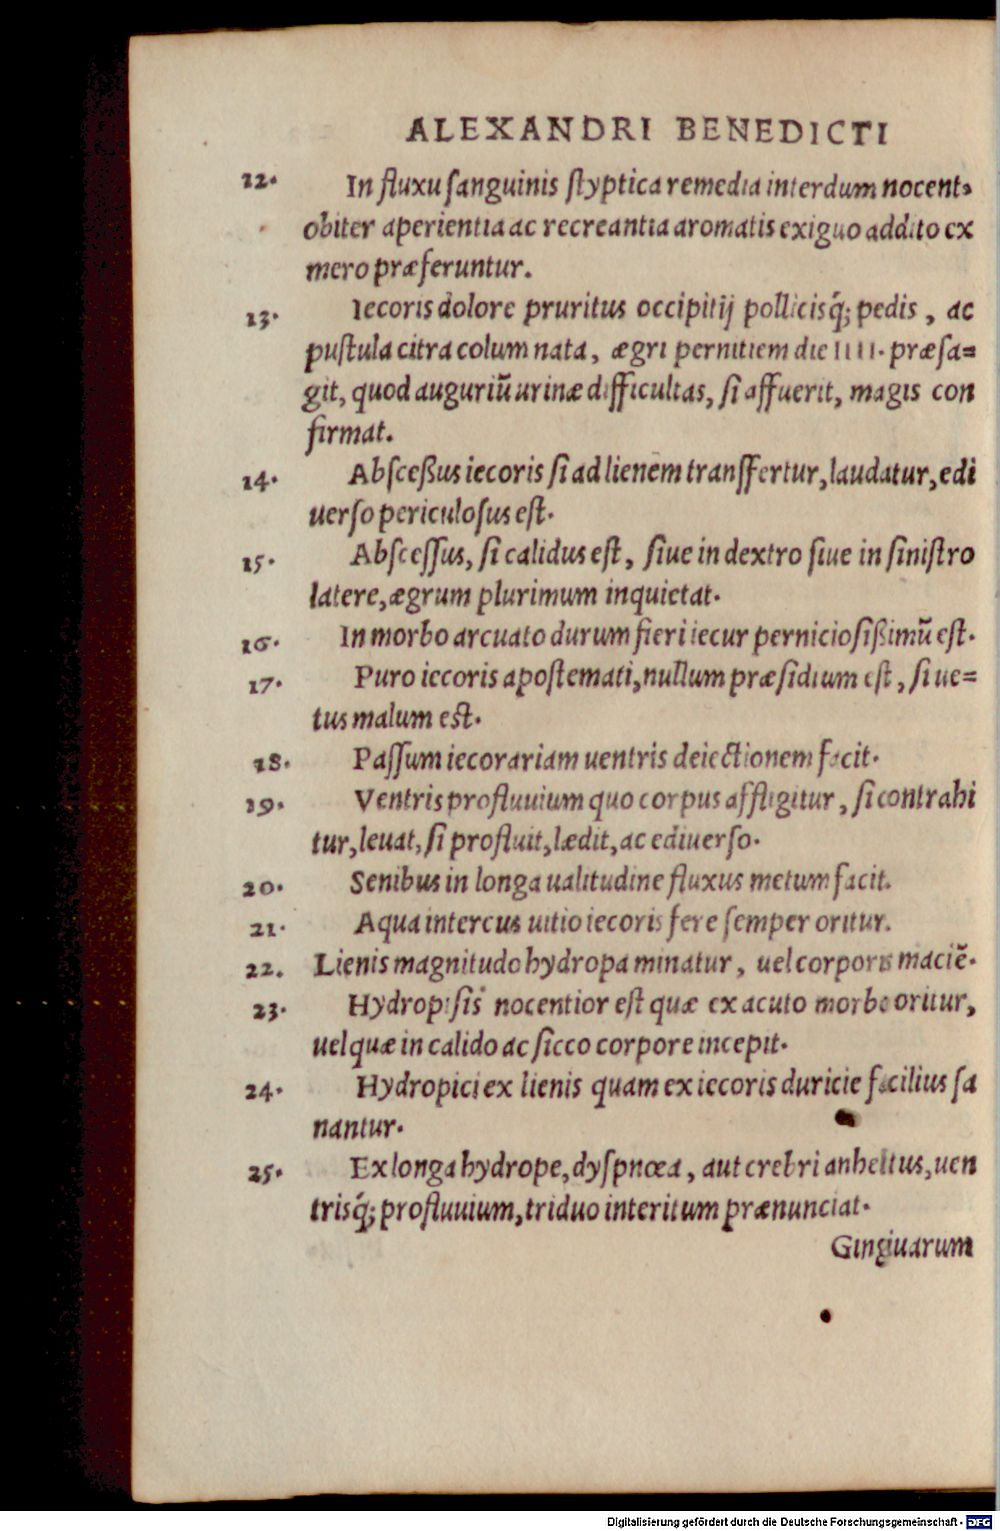 ALEXANDRI BENEDICTI
12. In fluxu ſanguinis ſtyptica remedia interdum nocent,
obiter aperientia ac recreantia aromatis exiguo addito ex
mero præferuntur.
13. Iecoris dolore pruritus occipitij pollicisq́; pedis, ac
puſtula citra colum nata, ægri pernitiem die IIII. præſa=
git, quod auguriũ urinæ difficultas, ſi affuerit, magis con
firmat.
14. Abſceßus iecoris ſi ad lienem tranſfertur, laudatur, edi
uerſo periculoſus eſt.
15. Abſceſſus, ſi calidus eſt, ſiue in dextro ſiue in ſiniſtro
latere, ægrum plurimum inquietat.
16. In morbo arcuato durum fieri iecur pernicioſißimũ eſt.
17. Puro iecoris apoſtemati, nullum præſidium eſt, ſi ue=
tus malum eſt.
18. Paſſum iecorariam uentris deiectionem facit.
19. Ventris profluuium quo corpus affligitur, ſi contrahi
tur, leuat, ſi profluit, lædit, ac ediuerſo.
20. Senibus in longa ualitudine fluxus metum facit.
21. Aqua intercus uitio iecoris fere ſemper oritur.
22. Lienis magnitudo hydropa minatur, uel corporis maciẽ.
23. Hydropiſis nocentior eſt quæ ex acuto morbo oritur,
uel quæ in calido ac ſicco corpore incepit.
24. Hydropici ex lienis quam ex iecoris duricie facilius ſa
nantur.
25. Ex longa hydrope, dyſpnœa, aut crebri anhelitus, uen
trisq́; profluuium, triduo interitum prænunciat.
Gingiuarum
Digitalisierung gefördert durch die Deutsche Forschungsgemeinschaft - DFG